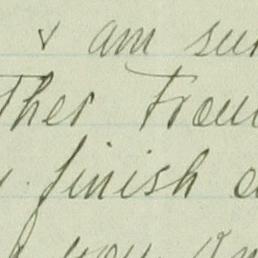 & am sur
ther Trou
finish a
you